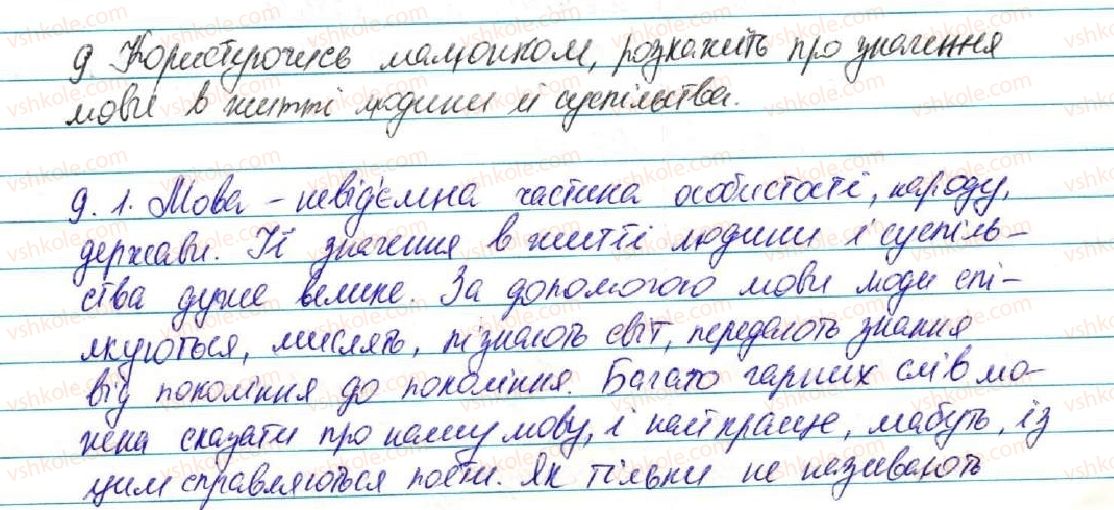 9 Користуючись малюнком, розкажіть про значення
мови в житті людини й суспільства.
9. 1. Мова - невід'ємна частина особистості, народу,
держави. Її значення в житті людини і суспіль-
ства дуже велике. За допомогою мови люди спі-
лкуються, мислять, пізнають світ, передають знання
від покоління до покоління. Багато гарних слів мо-
жна сказати про нашу мову, і найкраще, мабуть, із
цим справляються поети. Як тільки не називають